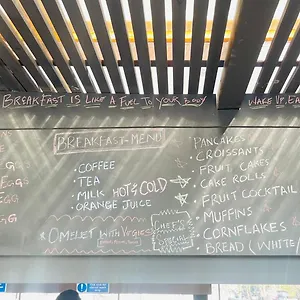 BREAKFAST IS LIKE A FUEL TO YOUR BODY
WAKE UP, EA
BREAKFAST-MENU
• COFFEE
• TEA
• MILK HOT & COLD
• ORANGE JUICE
* OMELET WITH VEGIES
CHEF'S
SPECIAL
PANCAKES
• CROISSANTS
• FRUIT CAKES
• CAKE ROLLS
• FRUIT COCKTAIL
• MUFFINS
• CORNFLAKES
• BREAD (WHITE
EGGS
EGG